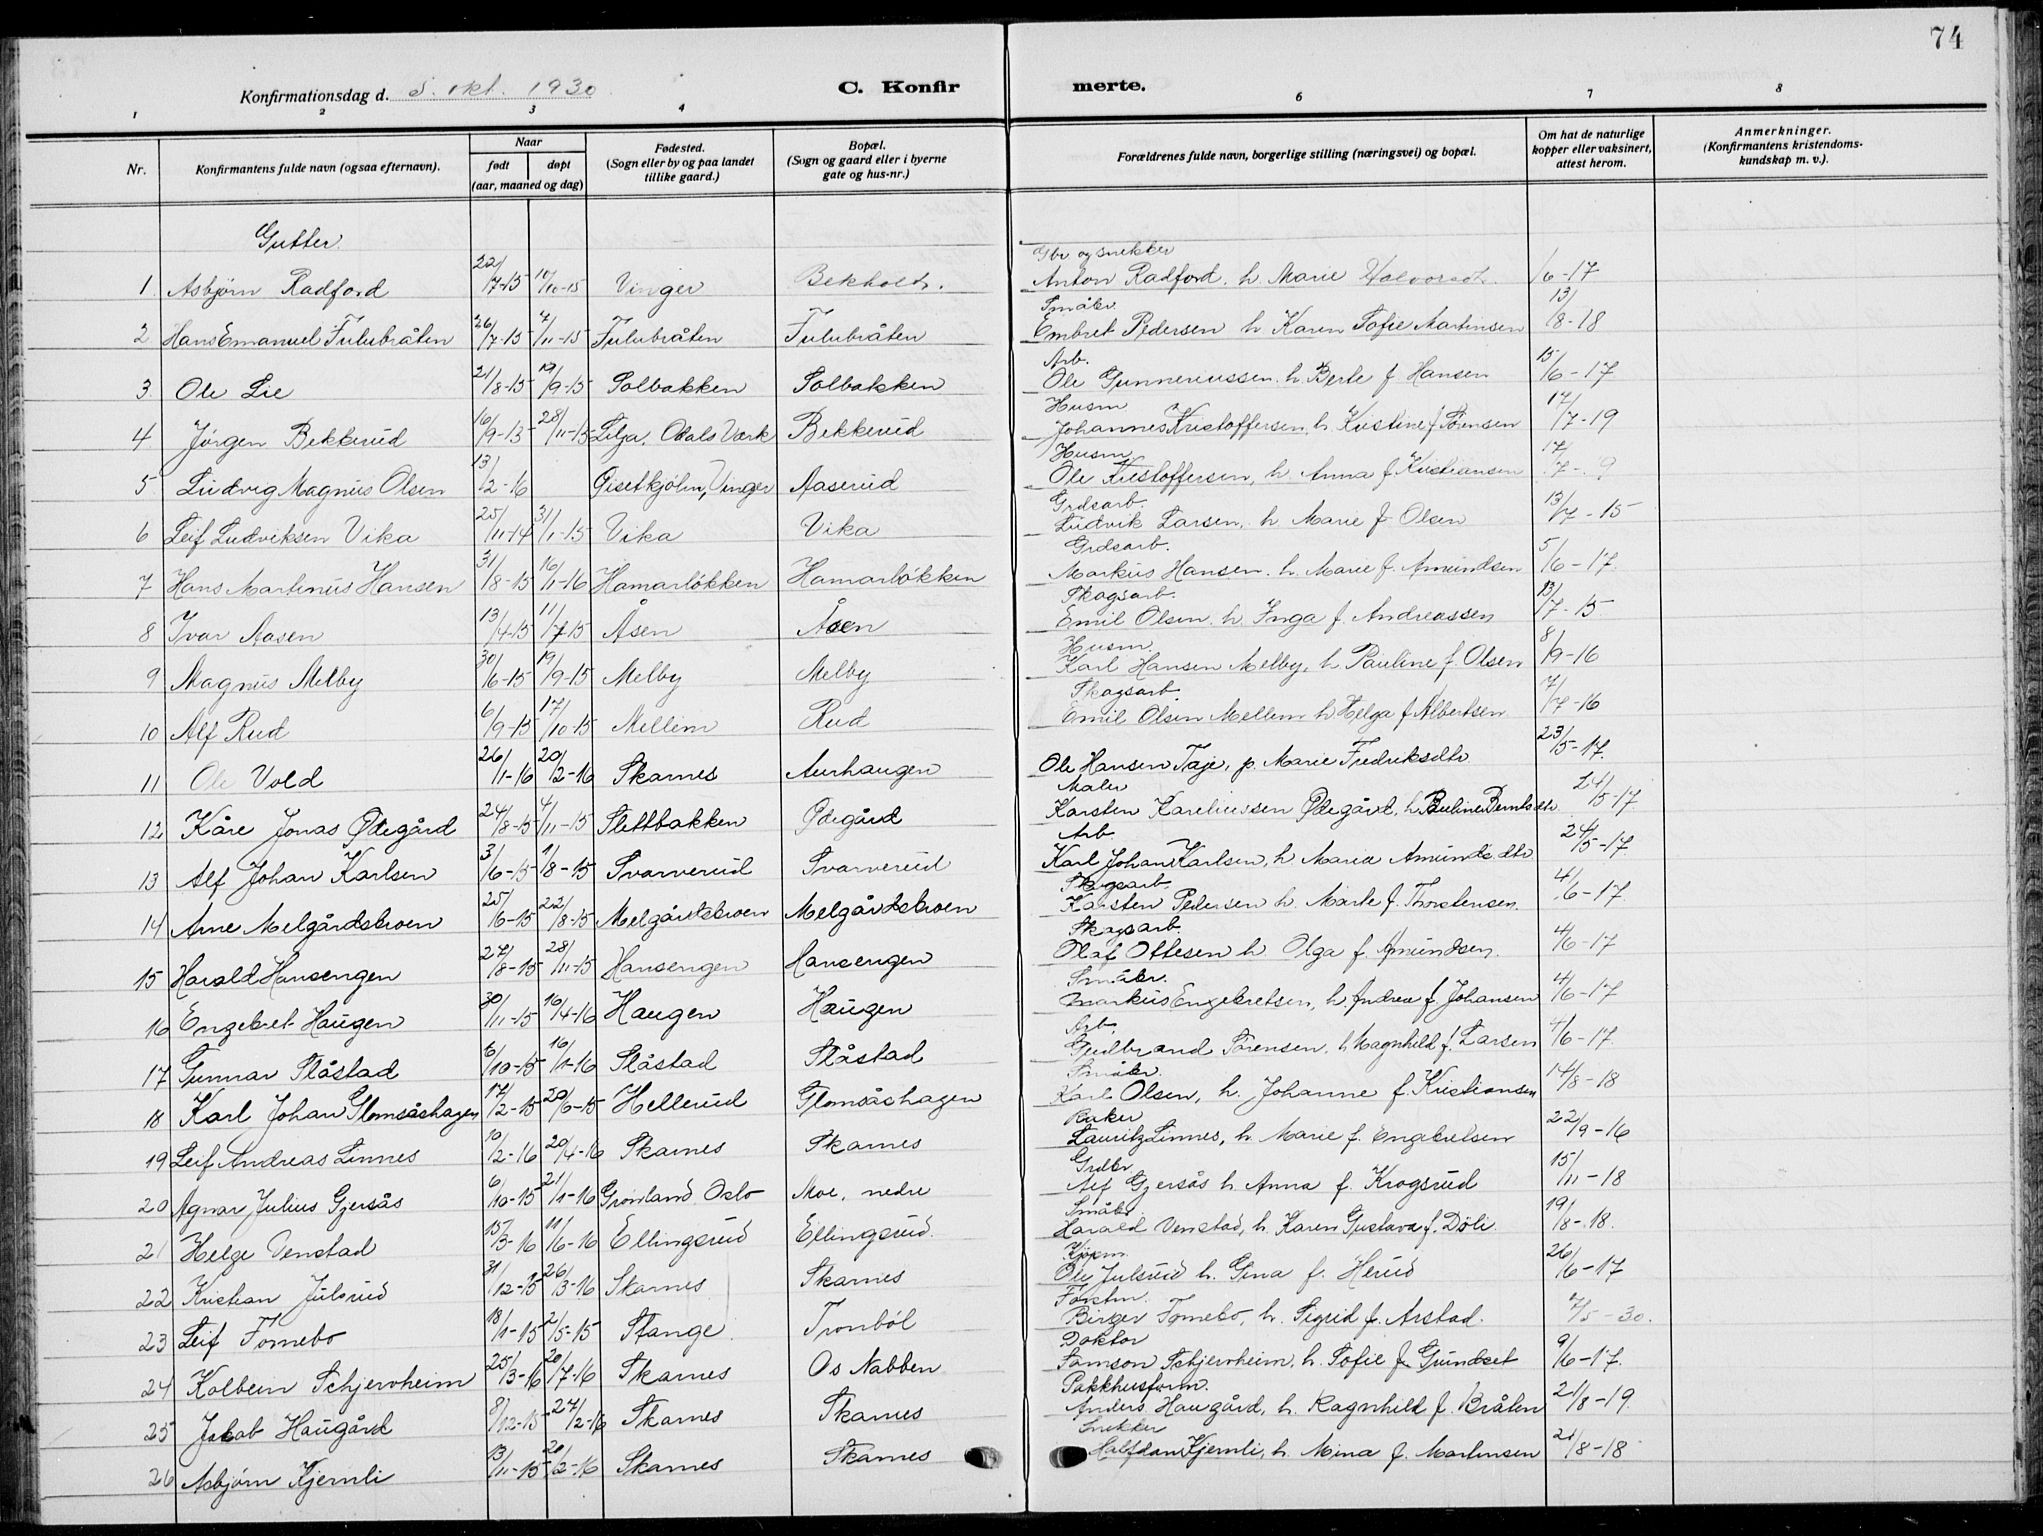 74
Konfirmationsdag d. 5. okt. 1930. C. Konfirmerte.
1 2 3 4 6 7 8
Nr. Konfirmantens fulde navn (ogsaa efternavn). Naar født døpt (aar, maaned og dag) Fødested. (Sogn eller by og paa landet tillike gaard.) Bopæl. (Sogn og gaard eller i byerne gate og hus-nr.) Forældrenes fulde navn, borgerlige stilling (næringsvei) og bopæl. Om hat de naturlige kopper eller vaksinert, attest herom. Anmerkninger. (Konfirmantens kristendomskundskap m. v.).
Gutter.
1 Asbjørn Radford 22/7-15 10/10-15 Vinger Bekholt. Gbr og snekker Anton Radford. h. Marie Halvorsdt. /6-17
2 Hans Emanuel Fulubråten 26/7-15 7/11-15 Fulubråten Fulubråten Småbr. Embret Pedersen h Karen Sofie Martinsen 13/8-18
3. Ole Lie 21/8-15 19/9-15 Solbakken Solbakken Arb. Ole Gunneriussen. h. Berte f. Hansen 15/6-17
4 Jørgen Bekkerud 16/9-15 28/11-15 Lilja, Odals Værk Bekkerud Husm Johannes Kristoffersen, h. Kristine f Sørensen 17/7-19
5 Ludvig Magnus Olsen 13/2-16 Gisetkjølen, Vinger Aaserud Husm. Ole Kristoffersen, h. Anna f. Kristiansen 17/7-19
6 Leif Ludviksen Vika 25/11-14 31/1-15 Vika Vika Grdsarb. Ludvik Larsen, h Marie f Olsen 13/7-15
7 Hans Martinus Hansen 31/8-15 16/11-16 Hamarløkken Hamarløkken Grdsarb. Markus Hansen. h. Marie f. Amundsen 5/6-17.
8 Ivar Aasen 13/4-15 11/7-15 Åsen Åsen Skogsarb. Emil Olsen. h. Inga f. Andreassen 13/7-15
9 Magnus Melby 30/6-15 19/9-15 Melby Melby Husm. Karl Hansen Melby, h Pauline f. Olsen 8/9-16
10 Alf Rud 6/9-15 17/10-15 Mellem Rud Skogsarb. Emil Olsen Mellem h Helga f Albertsen 7/7-16
11 Ole Vold 26/1-16 20/2-16 Skarnes Aurhaugen Ole Hansen Taje, p. Marie Fredriksdtr 23/5-17.
12 Kåre Jonas Ødegård 24/8-15 4/11-15 Slettbakken Ødegård Maler Karsten Kareliussen Ødegård, h Pauline Berntsdtr 24/5-17
13 Alf Johan Karlsen 3/6-15 1/8-15 Svarverud Svarverud Arb. Karl Johan Karlsen, h Marie Amundsdtr 24/5-17
14 Arne Melgårdsbroen 25/6-15 22/8-15 Melgårdsbroen Melgårdsbroen Skogsarb. Karsten Pedersen h. Marte f. Thorstensen. 4/6-17.
15 Harald Hansengen 27/8-15 28/11-15 Hansengen Hansengen Skogsarb. Olaf Ottesen h. Olga f Amundsen. 4/6-17
16 Engebret Haugen 30/11-15 16/4-16 Haugen Haugen Småbr. Markus Engebretsen, h, Andrea f, Johansen 4/6-17
17 Gunnar Slåstad 6/10-15 16/1-16 Slåstad Slåstad Arb. Gudbrand Sørensen. h Magnhild f. Larsen 4/6-17.
18 Karl Johan Glomsåshagen 17/2-15 20/6-15 Hellerud Glomsåshagen Småbr. Karl Olsen, h. Johanne f. Kristiansen 14/8-18
19 Leif Andreas Linnes 10/2-16 20/4-16 Skarnes Skarnes Baker Lauritz Linnes, h. Marie f. Engebretsen 22/9-16
20 Agnar Julius Gjersås 6/10-15 21/1-16 Grønland Oslo Moe, nedre Grdbr. Alf Gjersås h. Anna f. Krogsrud 15/11-18
21 Helge Venstad 15/3-16 11/6-16 Ellingsrud Ellingsrud. Småbr. Harald Venstad, h. Karen Gustava f. Døli. 19/8-18.
22 Kristian Julsrud 31/12-15 26/3-16 Skarnes Skarnes Kjøpm. Ole Julsrud h. Gina f. Herud 26/6-17
23 Leif Fornebo 18/1-15 2/5-15 Stange. Tronbøl Forstm. Birger Fornebo, h. Sigrid f. Arstad. 7/5-30.
24 Kolbein Schjervheim 25/3-16 20/7-16 Skarnes Os Nabben Doktor Samson Schjervheim, h. Sofie f. Grundset 9/6-17.
25 Jakob Haugård 8/12-15 27/2-16 Skarnes Skarnes Pakkhusform. Anders Haugård, h. Ragnhild f. Bråten 21/8-19.
26 Asbjørn Kjernli 13/11-15 20/2-16 Skarnes Skarnes Snekker Halfdan Kjernli, h. Mina f. Martinsen 21/8-18